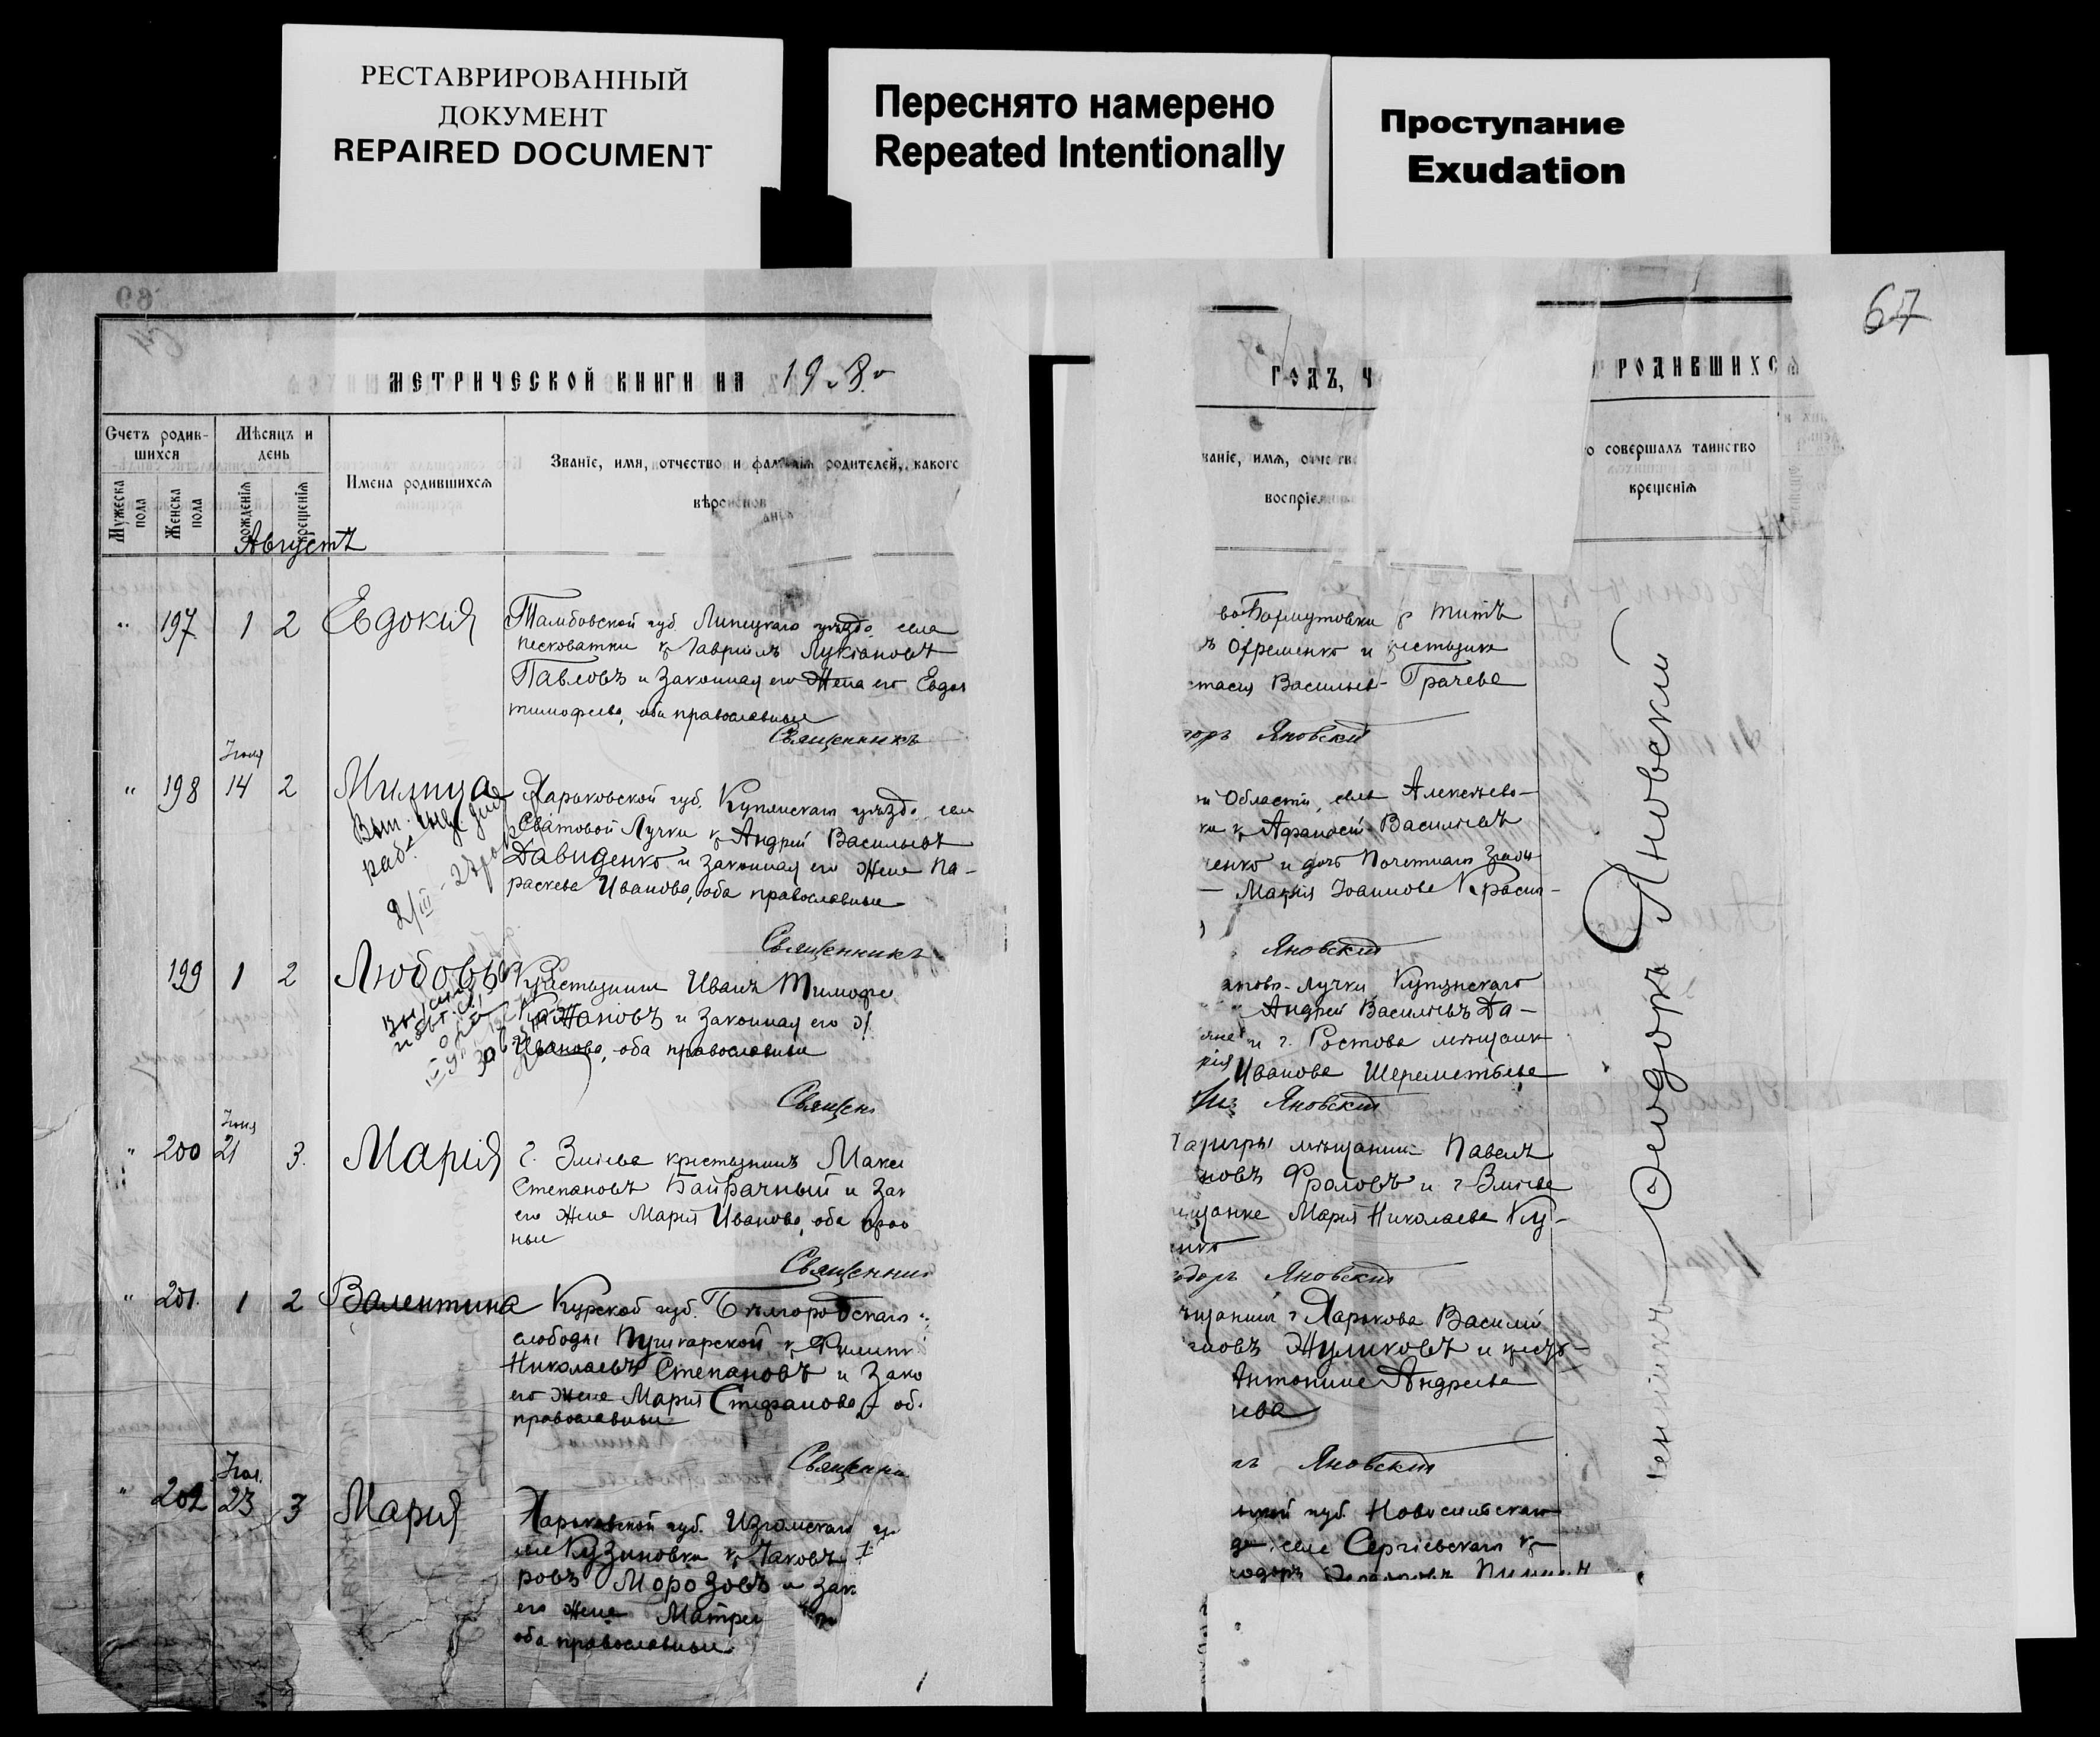 РЕСТАВРИРОВАННЫЙ
ДОКУМЕНТ
REPAIRED DOCUMENT
Переснято намерено
Repeated Intentionally
Проступание
Exudation
69
67
МЕТРИЧЕСКОЙ КНИГИ НА 1908 г
Счетъ родив-
шихся
Мужеска пола
Женска пола
Мѣсяцъ и
день
рожденія
крещенія
Имена родившихся
Званіе, имя, отчество и фамилія родителей, какого
вѣроиспов
данія
Августъ
" 197 1 2 Евдокія
Тамбовской губ. Липецкаго уѣзда села
Песковатки кр Гавріилъ Лукіановъ
Павловъ и законная его жена его Евдок
Тимофеева, оба православные
Священникъ
Іюля
" 198 14 2 Милица
2/III - 27 р
Харьковской губ. Купянскаго уѣзда, сел
Сватовой Лучки кр Андрей Васильевъ
Давиденко и законная его жена Па-
раскева Иванова, оба православные
Священникъ
199 1 2 Любовь
Крестьянинъ Иванъ Тимофе
Кажановъ и законная его ж
Иванова, оба православные
Священ
Іюля
" 200 21 3. Марія
г. Зміева крестьянинъ Макси
Степановъ Байрачный и зак
его жена Марія Иванова, оба прав
ные
Священни
" 201. 1 2 Валентина
Курской губ. Бѣлгородскаго
слободы Пушкарской кр Филипп
Николаевъ Степановъ и зако
его жена Марія Стефанова, об
православные
Священни
Іюл.
" 202 23 3 Марія
Харьковской губ. Изюмскаго уѣ
села Кузиновки кр Яковъ
ровъ Морозовъ и зак
его жена Матре
оба православные
ГОДЪ, Ч
РОДИВШИХСЯ
ваніе, имя, отчеств
воспріем
о совершалъ таинство
крещенія
во Бормутовки кр Титъ
ъ Офременко и крестьянка
стасія Васильев- Грачева
доръ Яновскій
й Области, села Алексѣево-
ка кр Афанасій Василіевъ
ченко и дочь Почетнаго Граж
— Марія Іоаннова Красн-
Яновскій
атово-Лучки Купянскаго
Андрей Василіевъ Да-
и г. Ростова мѣщанк
рія Иванова Шереметьева
Яновскій
мѣщанинъ Павелъ
новъ Фроловъ и г Зміева
мѣщанка Марія Николаева Ку-
енко
одоръ Яновскій
ѣщанинъ г Харькова Василій
новъ Жуликовъ и крест-
Антонина Андреева
чева
ръ Яновскій
ской губ. Новосильскаго
да, села Сергіевскаго кр
ѳодоръ
Священникъ Ѳеодоръ Яновскій